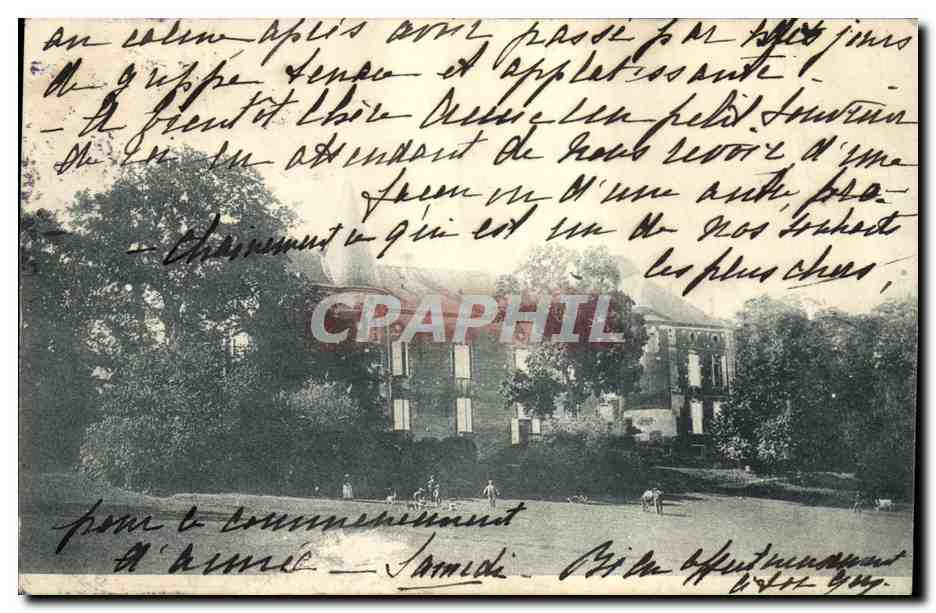 au calme après avoir passé par jours
de grippe tenace et applatissante.
- A bientôt chère amie un petit souvenir
de en attendant de nous revoir d'une
façon ou d'une autre, pro-
- chainement ce qui est un de nos souhaits
les plus chers,
CPAPHIL
pour le commencement
d'année - Samedi - Bien affectueusement
à toi